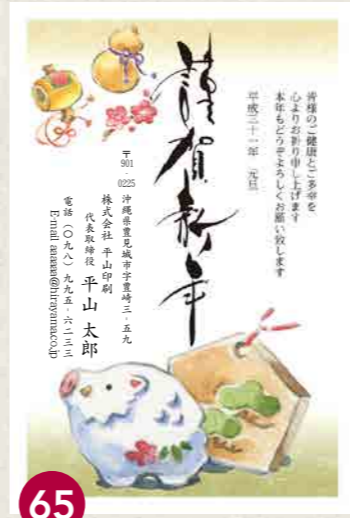 皆様のご健康とご多幸を
心よりお祈り申し上げます
本年もどうぞよろしくお願い致します
平成三十一年 元旦
謹賀新年
〒901-0225 沖縄県豊見城市字豊崎三-五九
株式会社 平山印刷
代表取締役 平山 太郎
電話(〇九八)九九五-六二三三
E-mail aaaaaa@hirayama.co.jp
65